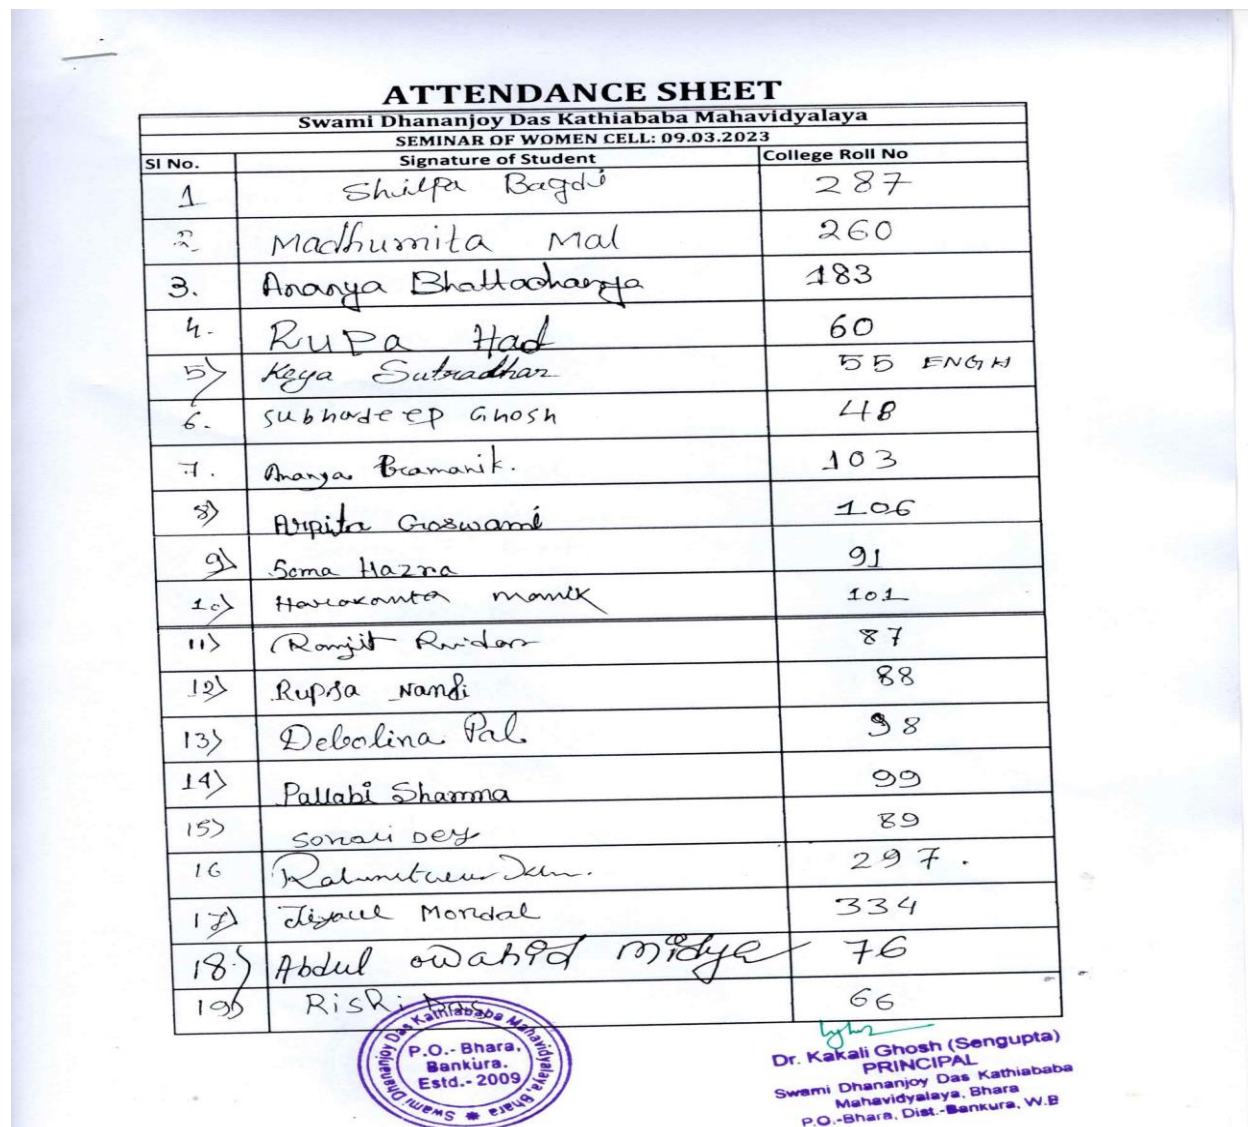 ATTENDANCE SHEET
Swami Dhananjoy Das Kathiababa Mahavidyalaya
SEMINAR OF WOMEN CELL: 09.03.2023
Sl No. Signature of Student College Roll No
1 Shilpa Bagdi 287
2 Madhumita Mal 260
3. Ananya Bhattacharya 183
4. Rupa Had 60
5) Keya Sutradhar 55 ENGH
6. Subhadeep Ghosh 48
7. Ananya Pramanik. 103
8) Arpita Goswami 106
9) Soma Hazra 91
10) 101
11) Ranjit Ruidas 87
12) Rupsa Nandi 88
13) Debolina Pal 98
14) Pallabi Sharma 99
15) Sonali Dey 89
16 297.
17) Mondal 334
18) Abdul owahid midya 76
19) Das 66
Swami Dhananjoy Das Kathiababa Mahavidyalaya, Bhara
P.O.- Bhara,
Bankura.
Estd.- 2009
Dr. Kakali Ghosh (Sengupta)
PRINCIPAL
Swami Dhananjoy Das Kathiababa
Mahavidyalaya, Bhara
P.O.-Bhara, Dist.-Bankura, W.B